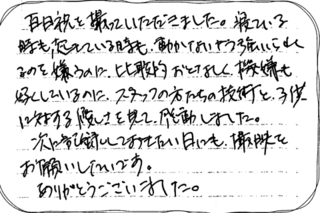 百日祝を撮っていただきました。寝ている
時も起きている時も、動かないよう
るのを嫌うのに、比較的おとなしく、機嫌も
好くしているのに、スタッフの方たちの技術と、子供
に対する優しさを見て、感動しました。
次に記録しておきたい日にも、撮影を
お願いしたいです。
ありがとうございました。